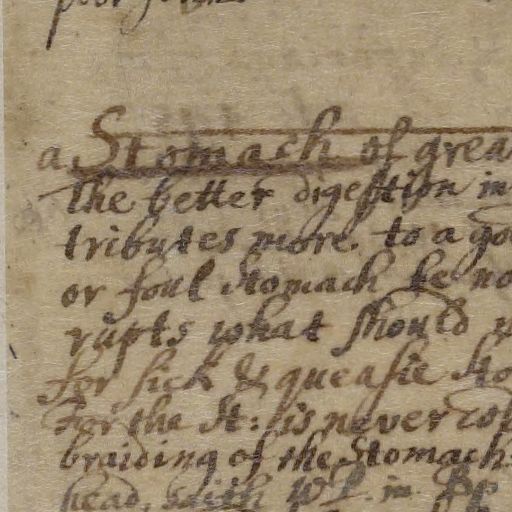 a Stomach of grea
The better digestion in
tributes more. to a goo
or foul stomach be no
rupts what should
for sick & queasie sto
For the st: is never col
braiding of the Stomach
head, saith W P. in